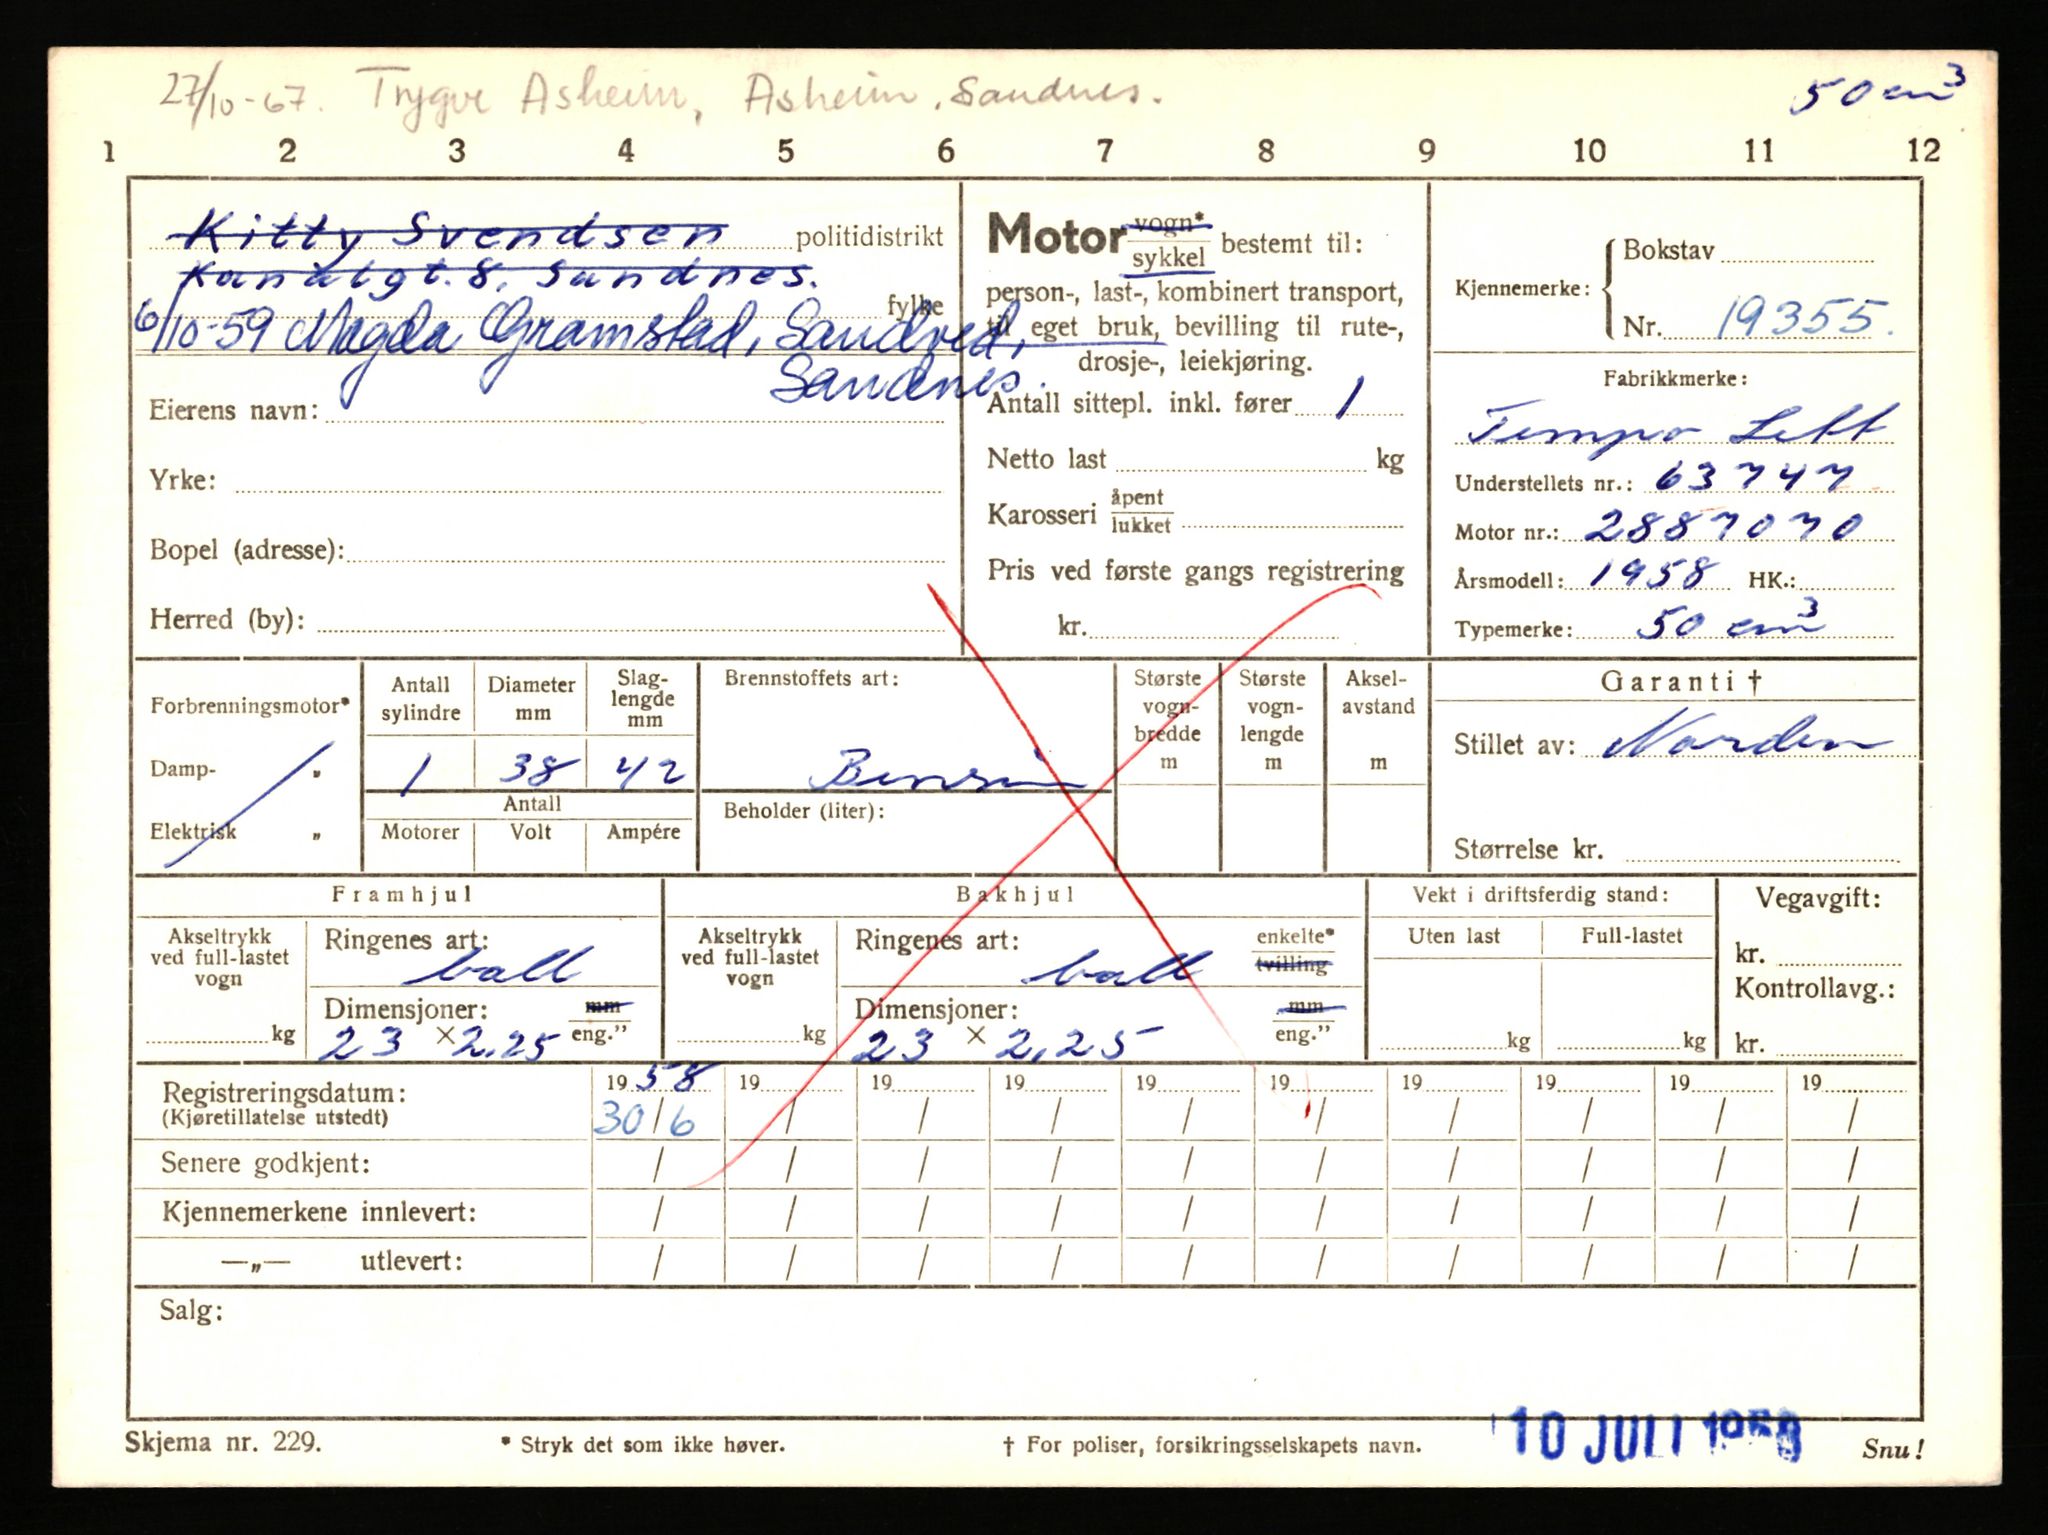 27/10-67. Trygve Asheim, Asheim, Sandnes.
50 cm3
1 2 3 4 5 6 7 8 9 10 11 12
Kitty Svendsen politidistrikt
Kanalgt. 8, Sandnes.
fylke
6/10-59 Magda Gramstad, Sandved,
Sandnes.
Eierens navn:
Yrke:
Bopel (adresse):
Herred (by):
Motor vogn* sykkel bestemt til:
person-, last-, kombinert transport,
til eget bruk, bevilling til rute-,
drosje-, leiekjøring.
Antall sittepl. inkl. fører 1
Netto last kg
Karosseri åpent lukket
Pris ved første gangs registrering
kr.
Kjennemerke: Bokstav
Nr. 19355.
Fabrikkmerke:
Tempo Lett
Understellets nr.: 63747
Motor nr.: 2887070
Årsmodell: 1958 HK.:
Typemerke: 50 cm3
Forbrenningsmotor*
Damp- „
Elektrisk „
Antall sylindre
Diameter mm
Slag-lengde mm
1 38 42
Antall
Motorer Volt Ampére
Brennstoffets art:
Bensin
Beholder (liter):
Største vogn-bredde m
Største vogn-lengde m
Aksel-avstand m
Garanti †
Stillet av: Norden
Størrelse kr.
Framhjul
Akseltrykk ved full-lastet vogn
kg
Ringenes art:
ball
Dimensjoner: mm
23 × 2.25 eng.”
Bakhjul
Akseltrykk ved full-lastet vogn
kg
Ringenes art: enkelte*
ball tvilling
Dimensjoner: mm
23 × 2,25 eng.”
Vekt i driftsferdig stand:
Uten last Full-lastet
kg kg
Vegavgift:
kr.
Kontrollavg.:
kr.
Registreringsdatum: 1958 19 19 19 19 19 19 19 19 19
(Kjøretillatelse utstedt) 30/6 / / / / / / / / /
Senere godkjent: / / / / / / / / / /
Kjennemerkene innlevert: / / / / / / / / / /
—„— utlevert: / / / / / / / / / /
Salg:
10 JULI 1958
Skjema nr. 229. * Stryk det som ikke høver. † For poliser, forsikringsselskapets navn. Snu!